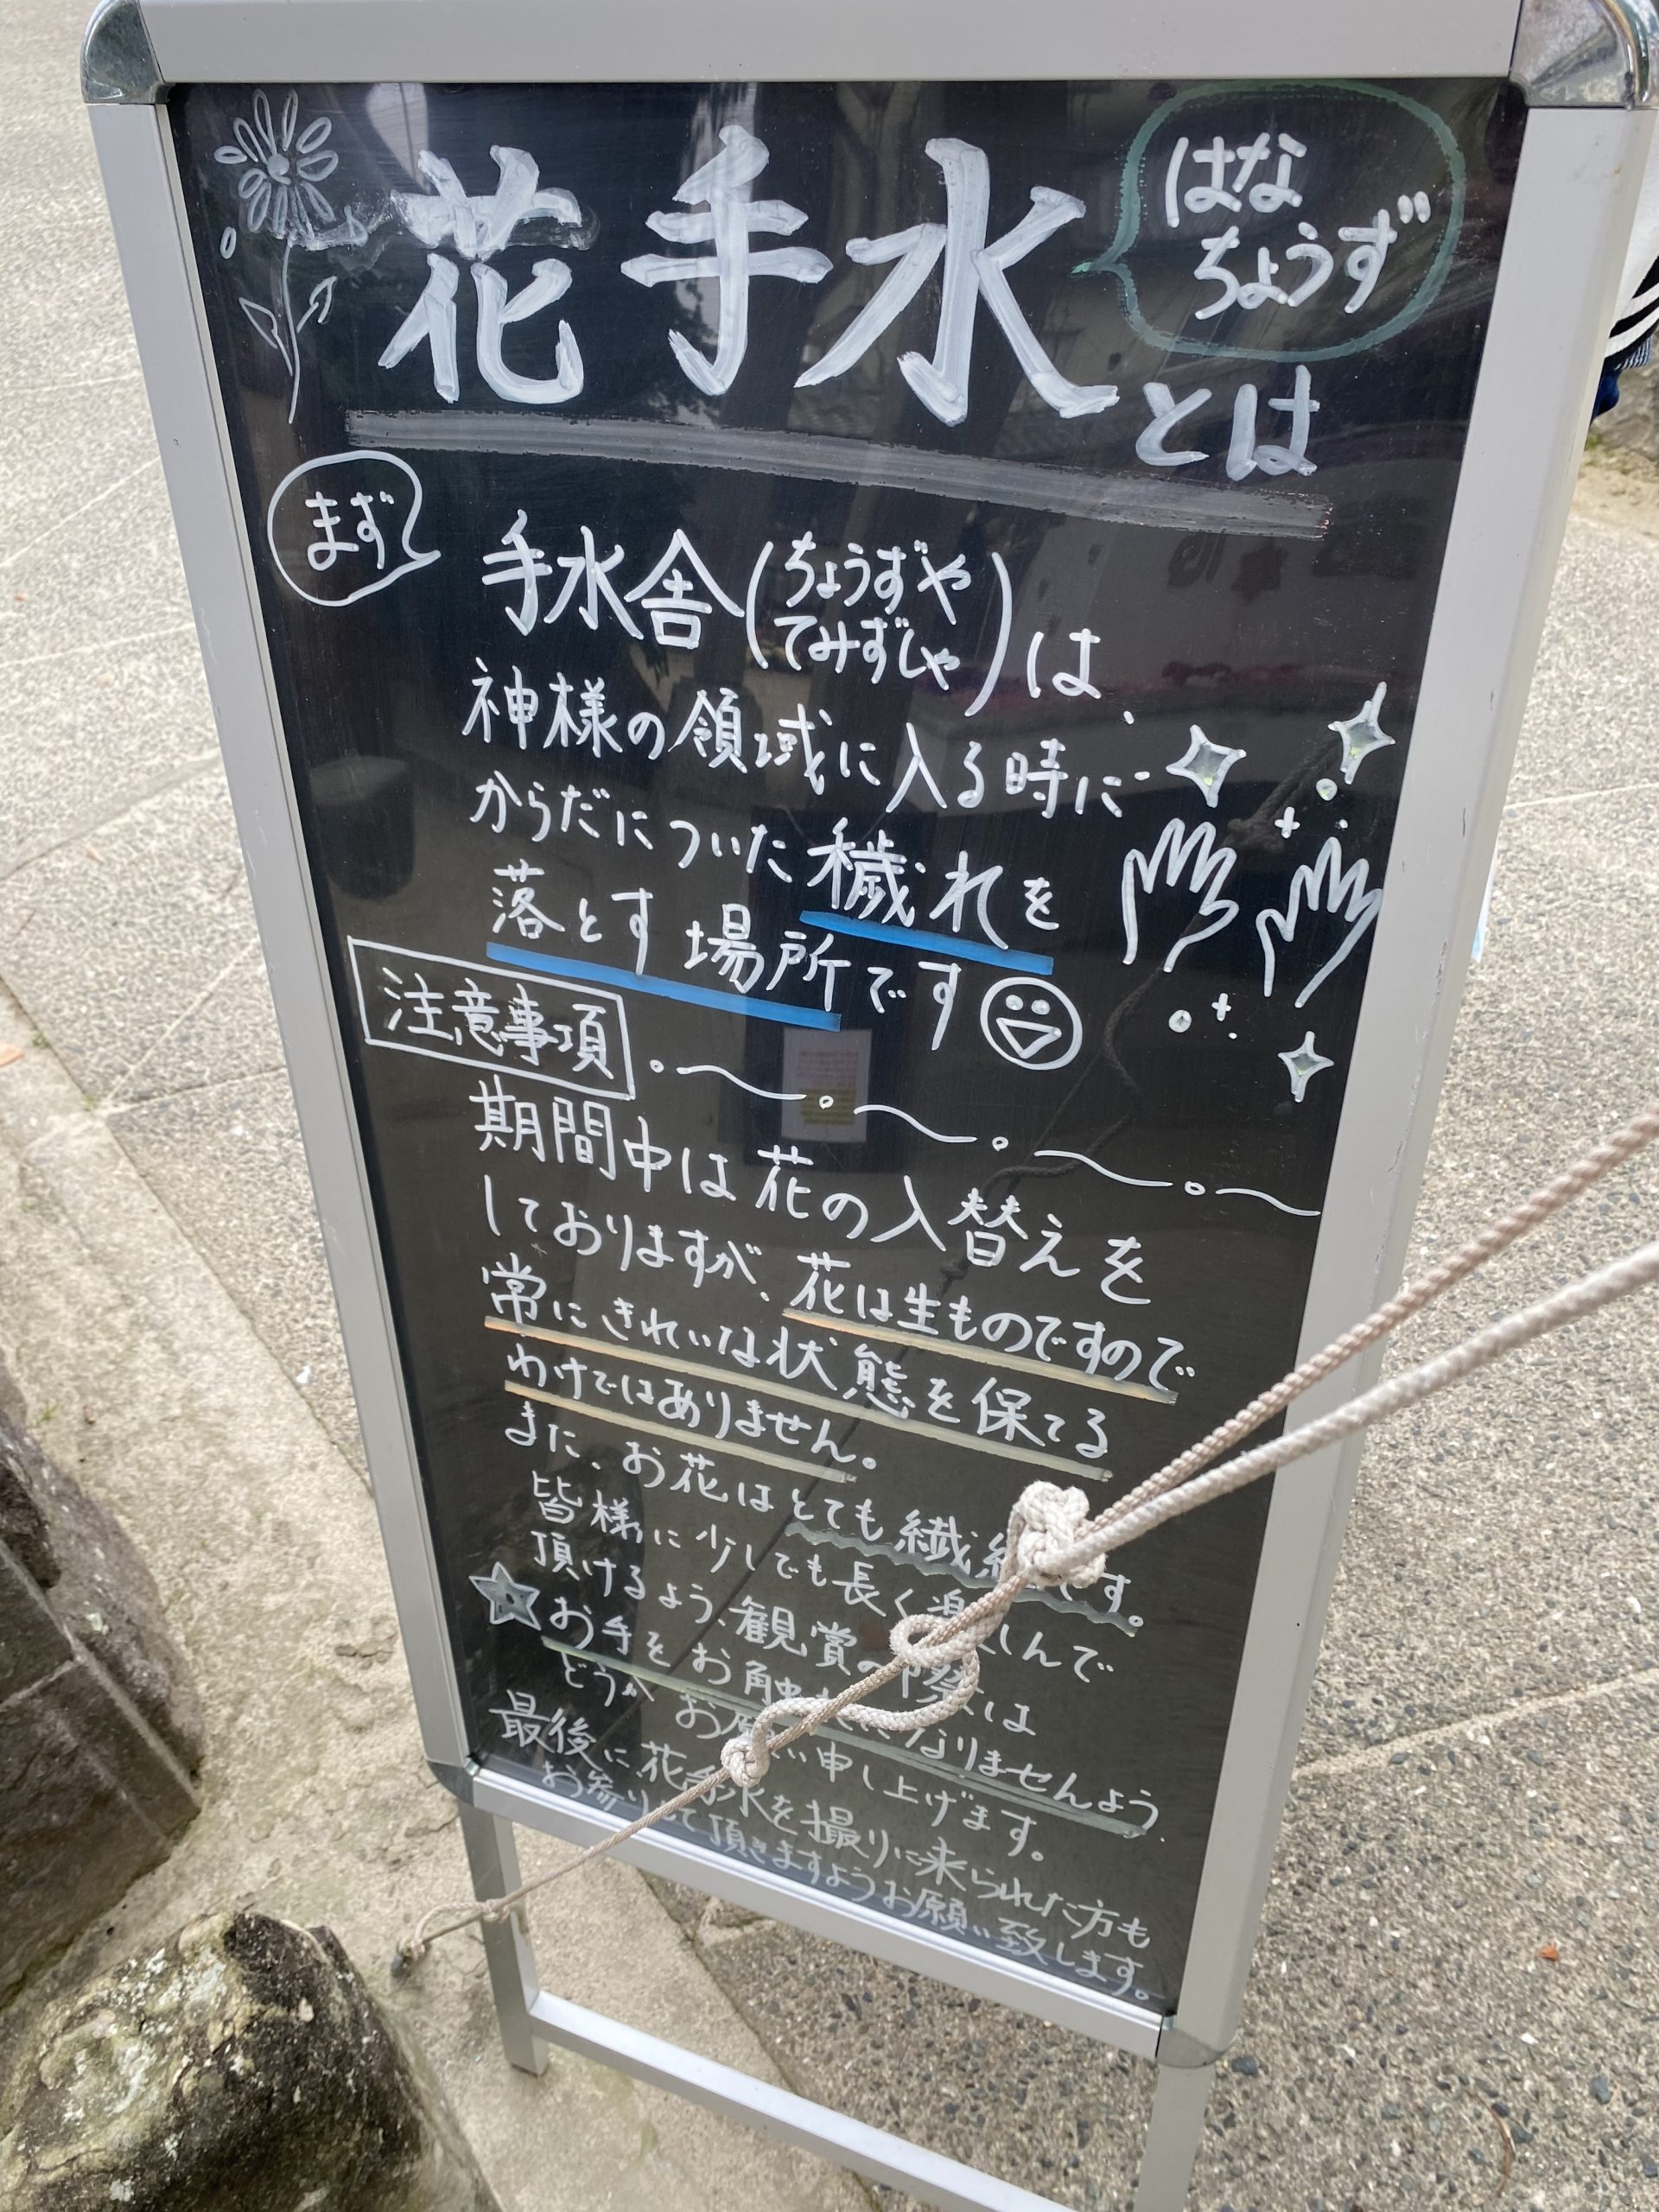 花手水
はな
ちょうず
とは
まず
手水舎(ちょうずや
てみずしゃ)は、
神様の領域に入る時に
からだについた穢れを
落とす場所です
注意事項
期間中は花の入替えを
しておりますが、花は生ものですので
常にきれいな状態を保てる
わけではありません。
また、お花はとても繊細です。
皆様に少しでも長く楽しんで
頂けるよう、観賞の際は
お手をお触れになりませんよう
どうかお願い申し上げます。
最後に、花手水を撮りに来られた方も
お参りして頂きますようお願い致します。